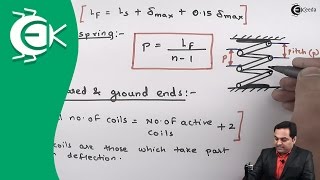 [ LF = LS + δmax + 0.15 δmax ]
Ekeeda
spring:-
P = LF / n-1
P
pitch (p)
& ground ends:-
no. of coils = No. of active coils + 2 ]
coils are those which take part
deflection.
EK